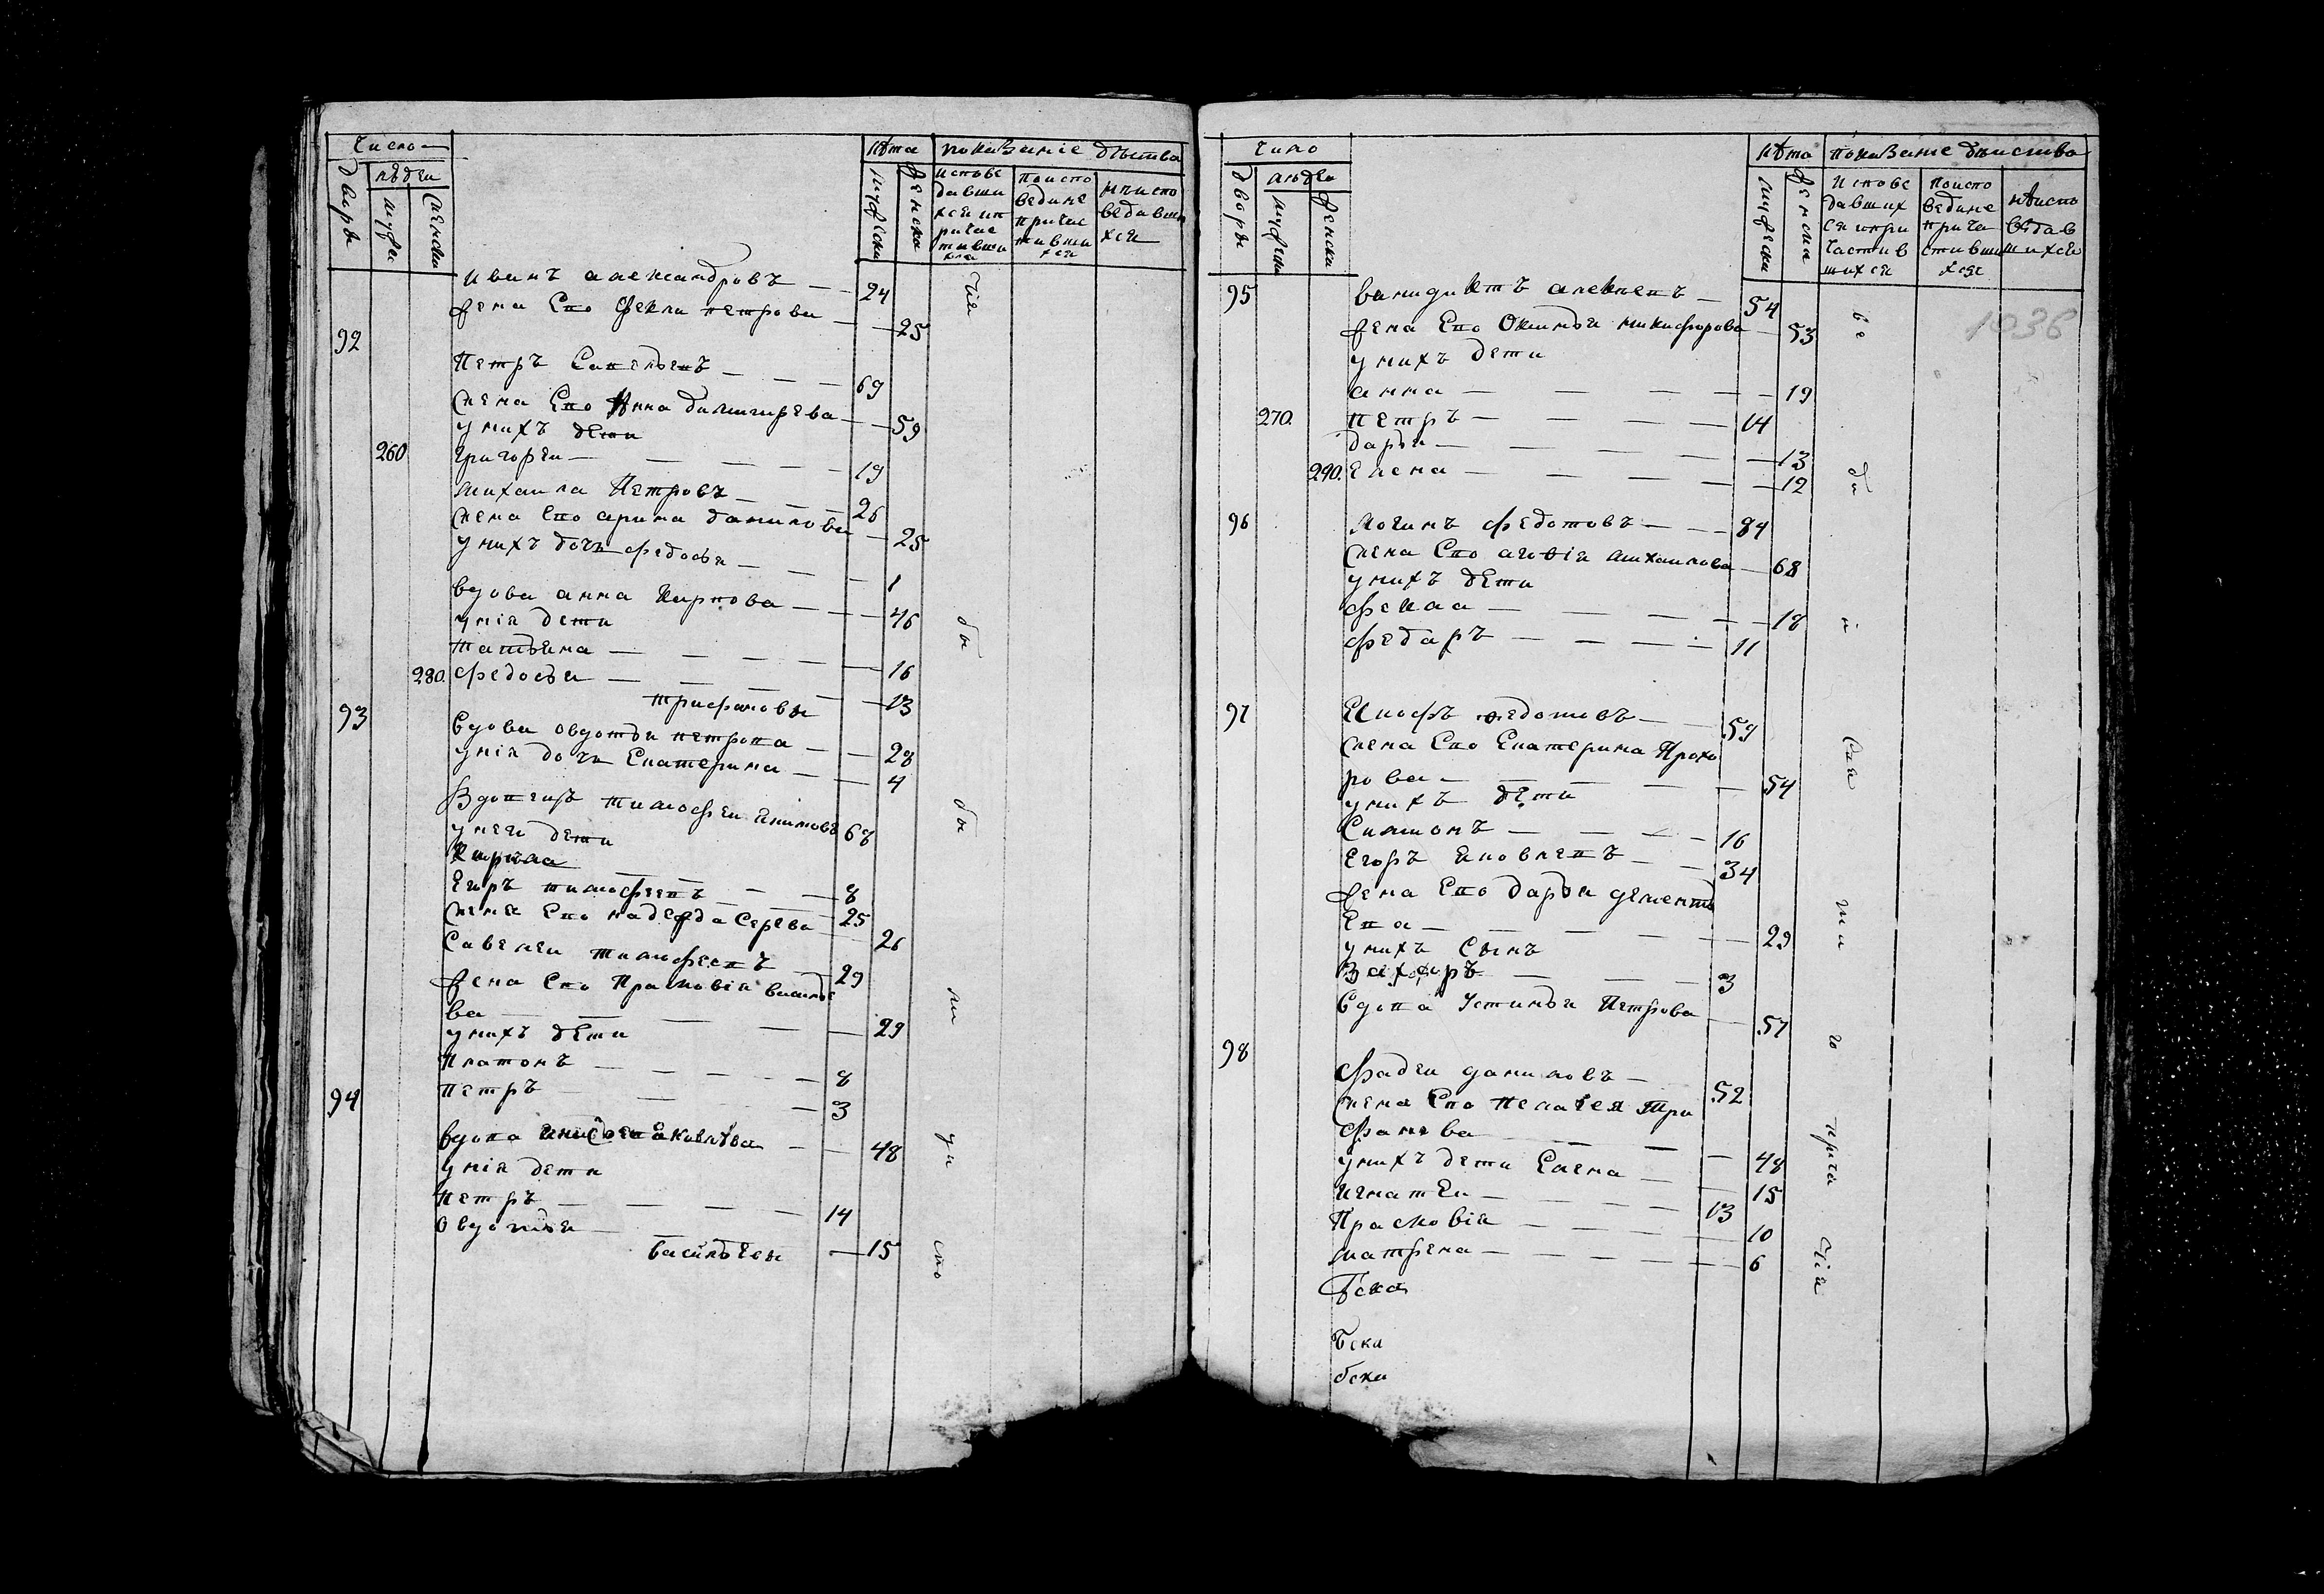 Число
лѣта показание дѣиства
двары
людеи
мужес
женски
мужески
женски
испове
давши
хся ип
ричас
тивши
хся
поиспо
ведине
причас
тивши
хся
неиспо
ведавши
хся
Иванъ александровъ — — 24
жена Его фекла петрова — — 25
92
Петръ Савельевъ — — — 69
жена Его Анна — — 59
унихъ дети
260 григореи — — — — — 19
михаила Петровъ — — — 26
жена его арина данилова — 25
унихъ дочь федосья — — — 1
вдова анна Карпова — — — 46
унія дети
татьяна — — — — — 16
280. федосья — — — — — 13
трифановы
93
вдова овдотья петрова — — 28
унія дочь Екатерина — — 4
Вдовецъ тимофеи Екимовъ 68
унего дети
Кирила — — — — — 8
Егоръ тимофеевъ — — 25
жена Его надежда Сергева 26
Савелеи тимофеевъ — 29
жена Его Прасковія василье
ва — — — — — 29
унихъ дети
Платонъ — — — — — 8
петръ — — — — — 3
94
вдова — — 48
унія дети
петръ — — — — — 14
Овдотья — — — 15
васильевы
бы
бы
ли
у
спо
число
лѣта показание дѣиства
дворы
людеи
мужески
женски
мужески
женски
Испове
давших
ся ипри
частив
шихся
поиспо
ведине
прича
стивши
хся
нѣиспо
ведав
шихся
1036
95 алексеевъ — 54
жена Его Окинья никифорова — 53
унихъ дети
анна — — — — — 19
270. петръ — — — — 14
дарья — — — — — 13
290. Елена — — — — — 12
96 логинъ федотовъ — — — 84
жена Его агафія михаилова — 68
унихъ дети
фекла — — — — — 18
федаръ — — — — 11
97 Есифъ федотовъ — — 59
жена Его Екатерина Прохо
рова — — — — 54
унихъ дети
Симионъ — — — — 16
Егоръ яковлевъ — — 34
жена Его дарья дементь
Ева — — — — — 29
унихъ сынъ
Захаръ — — — 3
вдова Устинья Петрова — 57
98
фадеи даниловъ — 52
жена Его пелагея Три
фанова — — — 48
унихъ дети Елена — — 15
игнатеи — — — — 13
Прасковія — — — — 10
матрена — — — — 6